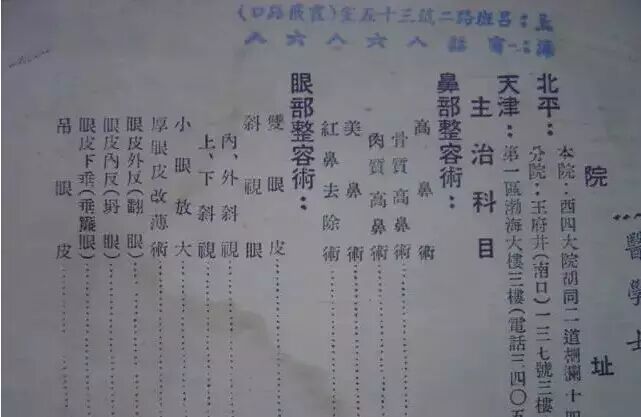 上海：呂班路二號三十五室(霞飛路口)
電話八六八六八
醫學士
院址
北平：
本院：西四大院胡同二道柵欄十四
分院：王府井(南口)一三七號三樓
天津：第一區渤海大樓三樓(電話三四〇五
主治科目
鼻部整容術：
高鼻術
骨質高鼻術
肉質高鼻術
美鼻術
紅鼻去除術
眼部整容術：
雙眼皮
斜視眼
內、外斜視
上、下斜視
小眼放大
厚眼皮改薄術
眼皮外反(翻眼)
眼皮內反(塌眼)
眼皮下垂(垂簾眼)
吊眼皮